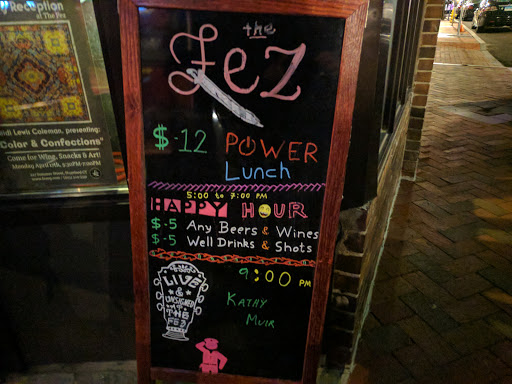 Reception
at The Fez
Heidi Lewis Coleman, presenting:
Color & Confections"
Come for Wine, Snacks & Art!
the
Fez
$.12 POWER
Lunch
5:00 to 7:00 PM
HAPPY HOUR
$.5 Any Beers & Wines
$.5 Well Drinks & Shots
LIVE
&
UNSIGNED
AT
THE
FEZ
9:00 PM
KATHY
MUIR